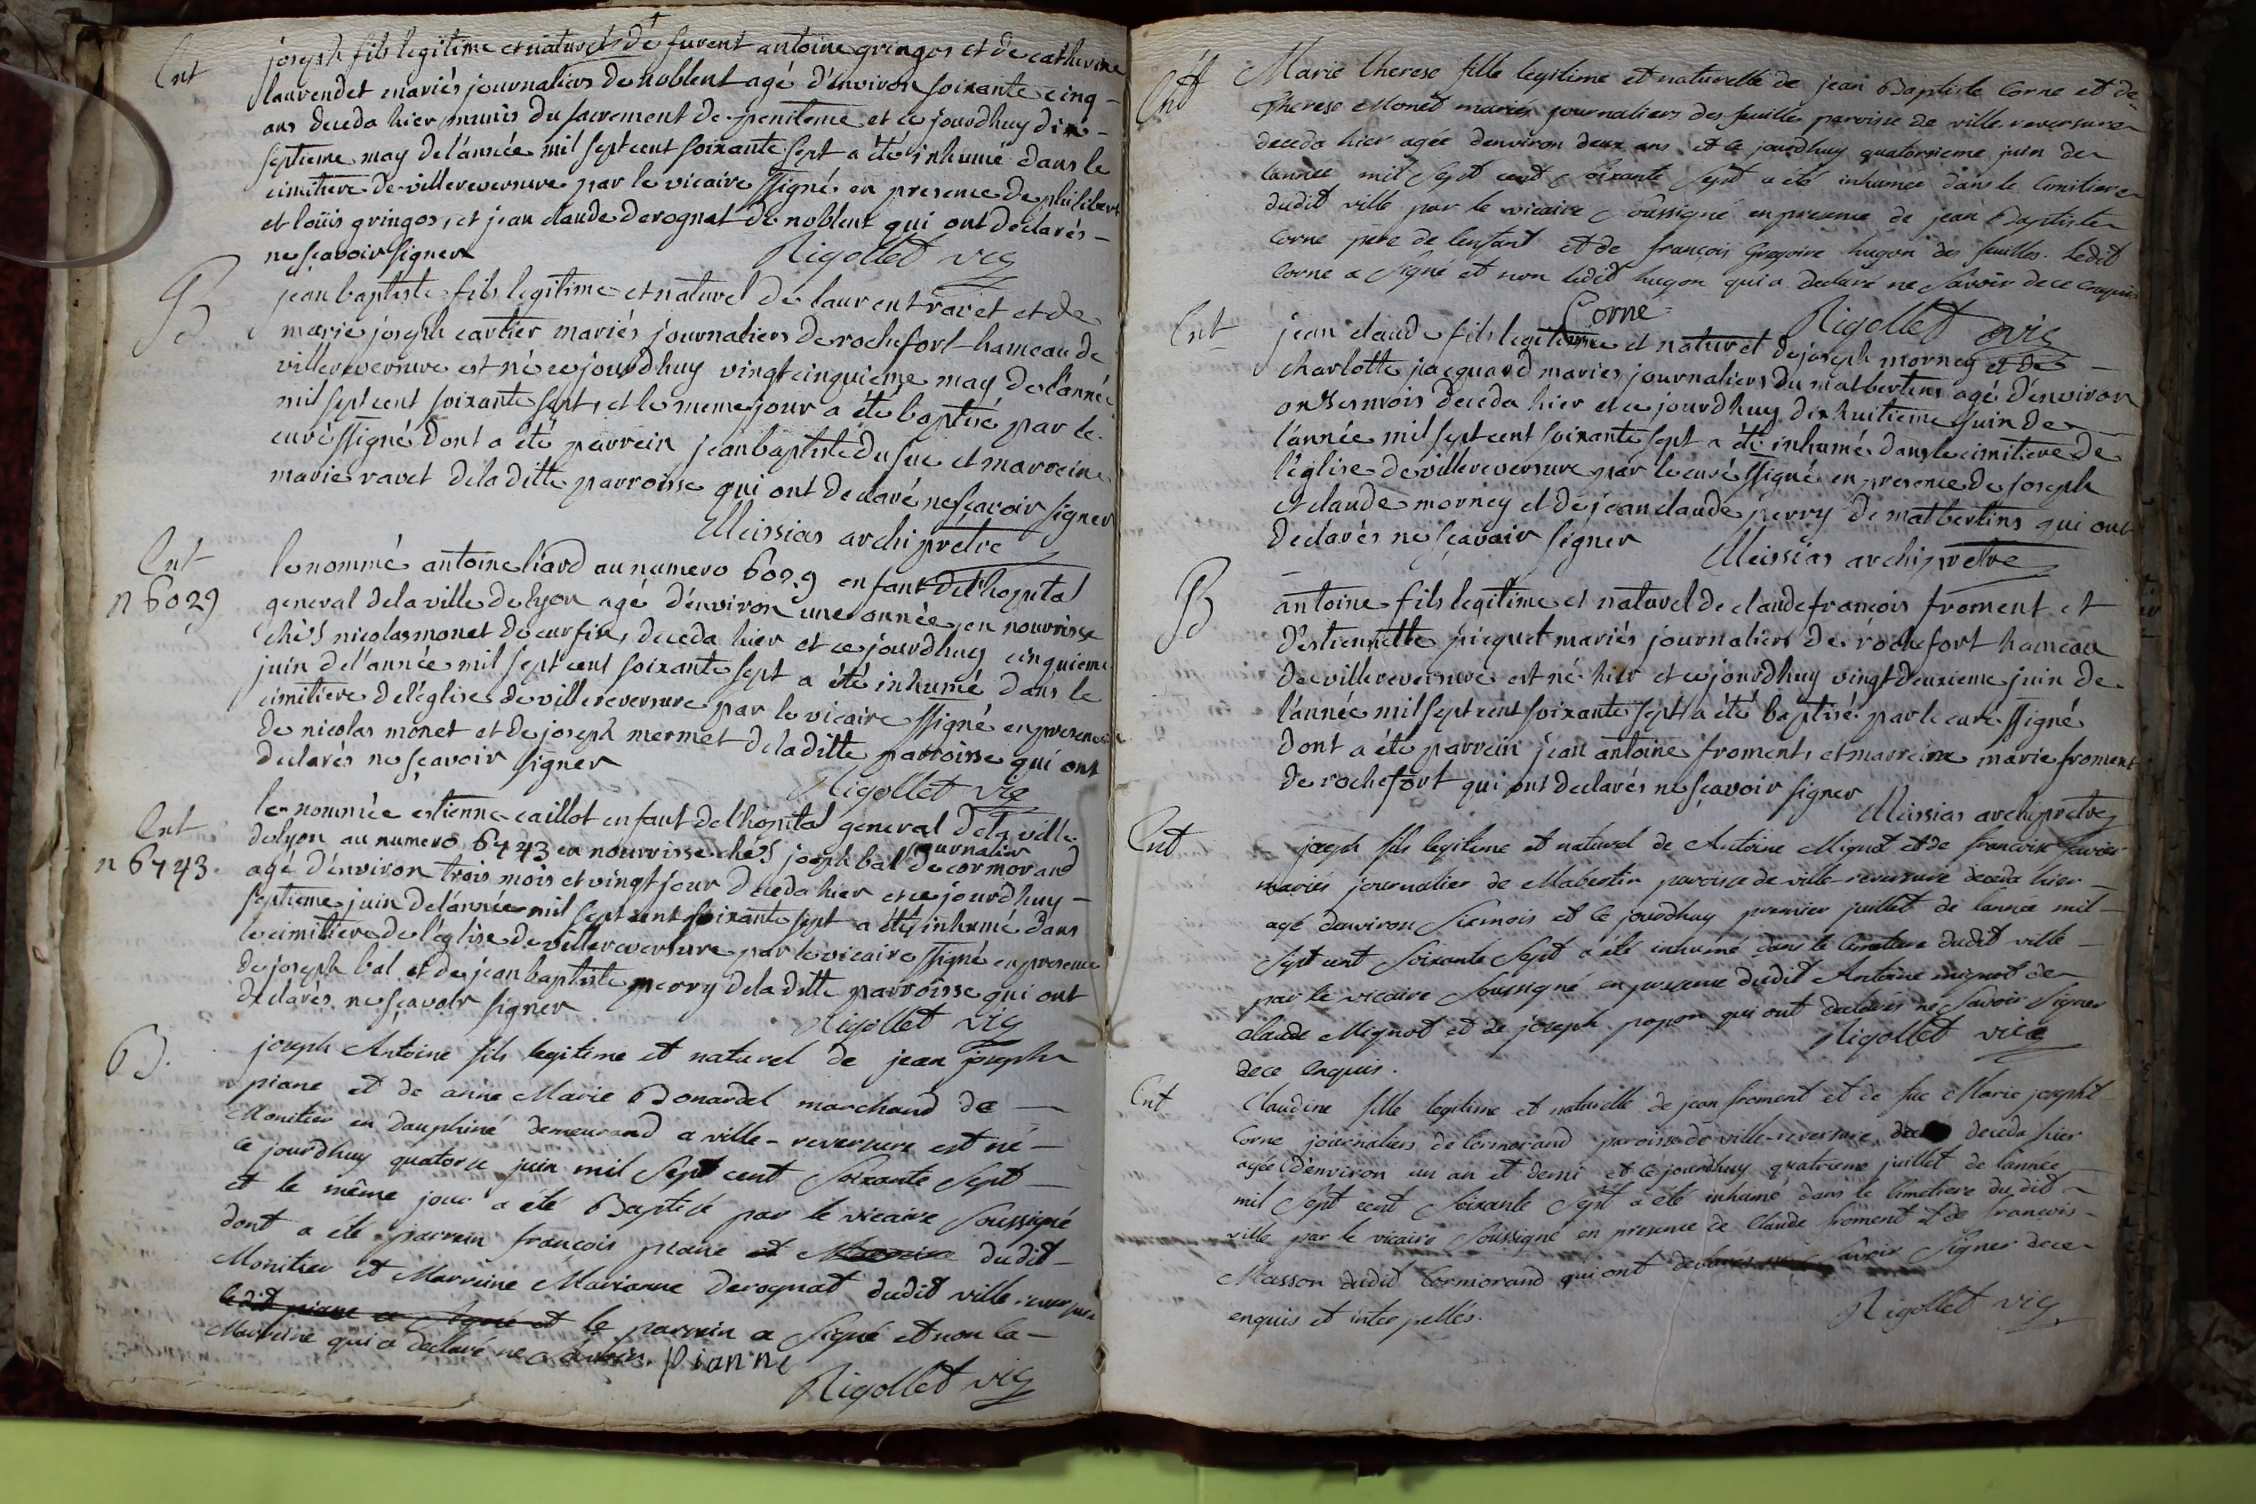 Ent
joseph fils legitime et naturel de furent antoine gringos et de catherine
laurendet mariés journaliers de noblent agé d'environ soixante cinq -
ans deceda hier munis du sacrement de penitence et ce jourdhuy dix -
septieme may de l'année mil sept cent soixante sept a été inhumé dans le
cimitiere de villereversure par le vicaire ssigné en presence de philibert
et loüis gringos, et jean claude derognat de noblent qui ont declarés -
ne sçavoir signer
Rigollet vic
B
jean baptiste fils legitime et naturel de laurent ravet et de
marie joseph cartier mariés journaliers de rochefort hameau de
villereversure est né ce jourdhuy vingt cinquieme may de l'année
mil sept cent soixante sept, et le meme jour a été baptisé par le
curé ssigné dont a été parrein jean baptiste du suc et marreine
marie ravet de la ditte parroisse qui ont declaré ne sçavoir signer
Meissias archiprétre
Ent
n 6029
le nommé antoine liard au numero 6029 enfant de l'hopital
general de la ville de lyon agé d'environ une année, en nourrisse
chés nicolas monet de curfin, deceda hier et ce jourdhuy cinquieme
juin de l'année mil sept cent soixante sept a été inhumé dans le
cimitiere de l'église de villereversure par le vicaire ssigné en presence
de nicolas monet et de joseph mermet de la ditte parroisse qui ont
declarés ne sçavoir signer
Rigollet vic
Ent
n 6743.
le nommée estienne caillot enfant de lhopital general de la ville
de lyon au numero 6743 en nourrisse chés joseph bal journalier de cormorand
agé d'environ trois mois et vingt jour deceda hier et ce jourdhuy -
septieme juin de l'année mil sept cent soixante sept a été inhumé dans
le cimitiere de l'église de villereversure par le vicaire ssigné en presence
de joseph bal et de jean baptiste perry de la ditte parroisse qui ont
declarés ne sçavoir signer
Rigollet vic
B.
joseph Antoine fils legitime et naturel de jean joseph
piane et de anne Marie Bonardel marchand de
Monitier en dauphiné demeurand a ville-reversure est né -
ce jourdhuy quatorze juin mil sept cent soixante sept
et le même jour a été Baptisé par le vicaire soussigné
dont a été parrein francois piane et dudit -
Monitier et Marreine Marianne derognat dudit ville reversure
ledit piane a signé et le parrein a signé et non la -
Marreine qui a declaré ne savoir. pianne
Rigollet vic
Ent
Marie therese fille legitime et naturelle de jean Baptiste Corne et de
therese Monet mariés journaliers des feuilles paroisse de ville reversure
deceda hier agée denviron deux ans et ce jourdhuy quatorzieme juin de
lannée mil sept cent soixante sept a été inhumée dans le Cimitiere
dudit ville par le vicaire soussigné en presence de jean Baptiste
Corne père de lenfant et de françois Gregoire hugon des feuilles. Ledit
Corne a signé et non ledit hugon qui a declaré ne savoir de ce enquis
Corne Rigollet vic
Ent
jean claude fils legitime et naturel de joseph morney et de
charlotte jacquard mariés journaliers du matbertins agé d'environ
onze mois deceda hier et ce jourdhuy dix huitieme juin de
l'année mil sept cent soixante sept a été inhumé dans le cimitiere de
l'église de villereversure par le curé ssigné en presence de joseph
et claude morney et de jean claude perry de matbertins qui ont
declarés ne sçavoir signer
Meissias archiprétre
B
antoine fils legitime et naturel de claude francois froment et
d'estiennette picquet mariés journaliers de rochefort hameau
de villereversure est né hier et ce jourdhuy vingt deuxieme juin de
l'année mil sept cent soixante sept a été baptisé par le curé ssigné
dont a été parrein jean antoine froment, et marreine marie froment
de rochefort qui ont declarés ne sçavoir signer
Meissias archiprétre
Ent
joseph fils legitime et naturel de Antoine Mignot et de francoise
mariés journalier de Mabertin paroisse de ville-reversure deceda hier -
agé denviron six mois et ce jourdhuy premier juillet de lannée mil -
sept cent soixante sept a été inhumé dans le Cimetiere dudit ville -
par le vicaire soussigné en presence dudit Antoine mignot de
Claude Mignot et de joseph popon qui ont declarés ne savoir signer
dece enquis.
Rigollet vic
Ent
Claudine fille legitime et naturelle de jean froment et de fue Marie josepht
Corne journaliers de Cormorand paroisse de ville-reversure deceda hier
agée d'environ un an et demi et ce jourdhuy quatrieme juillet de lannée
mil sept cent soixante sept a été inhumé dans le Cimetiere dudit
ville par le vicaire soussigné en presence de Claude froment et de francois -
Masson dudit Cormorand qui ont declarés savoir signer dece
enquis et interpellés.
Rigollet vic